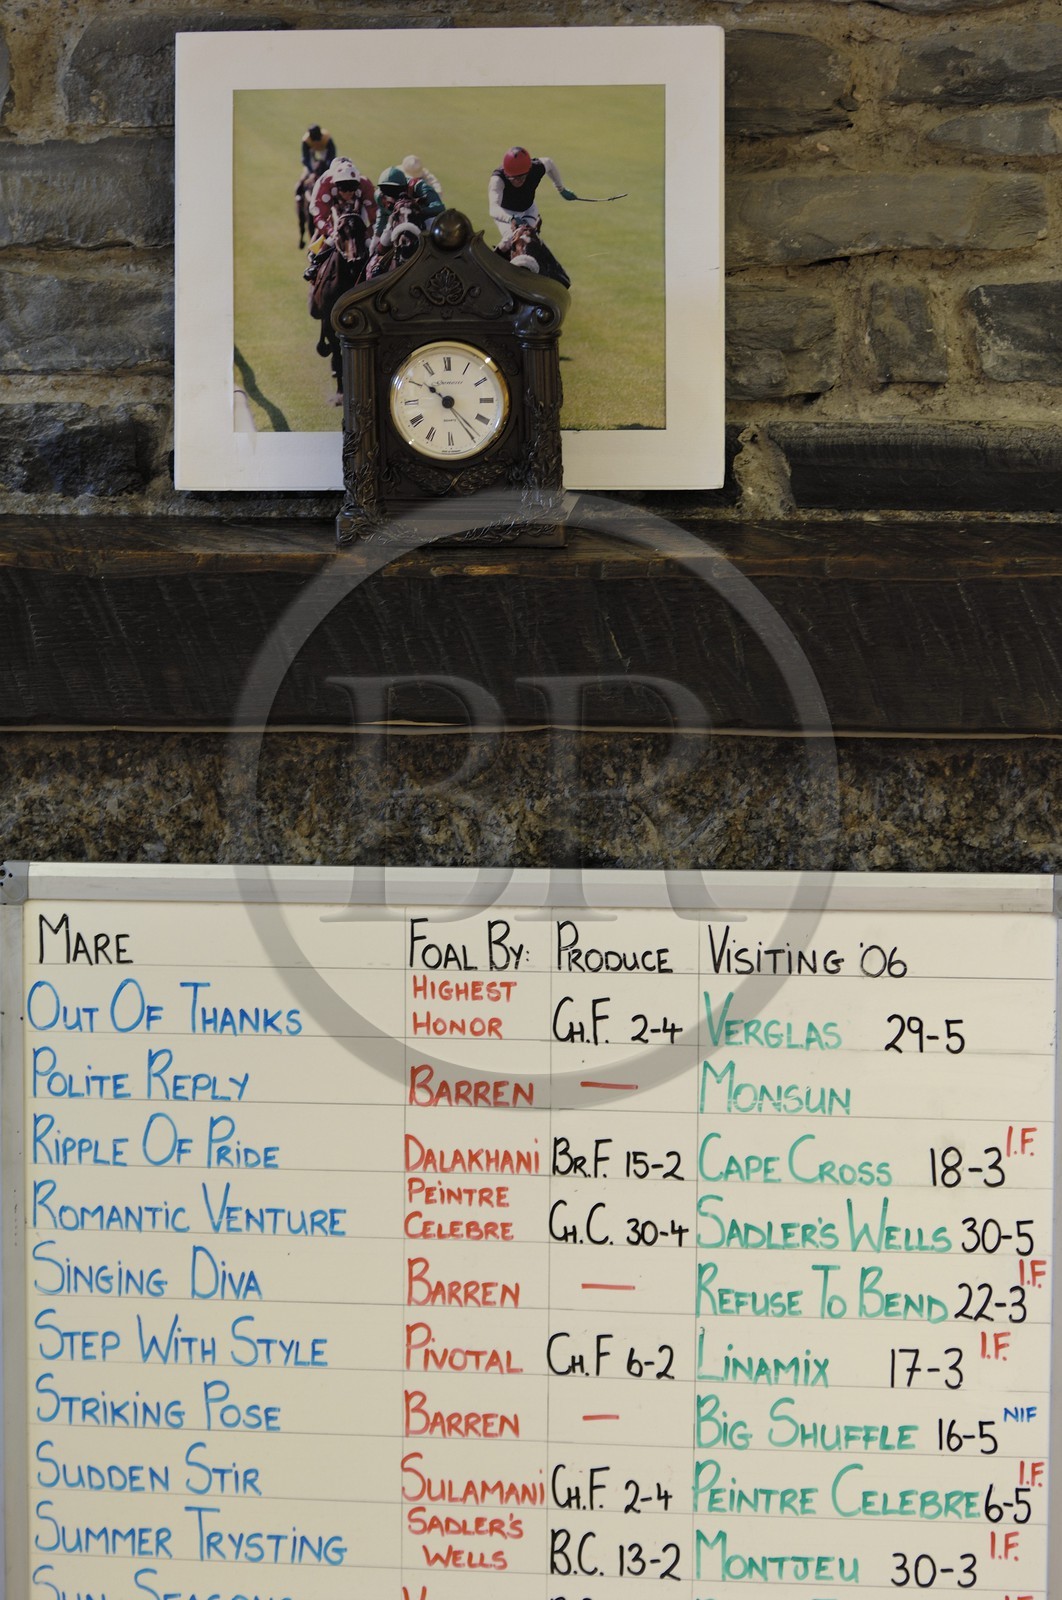 BR
MARE FOAL BY: PRODUCE VISITING '06
OUT OF THANKS HIGHEST HONOR CH.F. 2-4 VERGLAS 29-5
POLITE REPLY BARREN — MONSUN
RIPPLE OF PRIDE DALAKHANI BR.F. 15-2 CAPE CROSS 18-3 I.F.
ROMANTIC VENTURE PEINTRE CELEBRE CH.C. 30-4 SADLER'S WELLS 30-5
SINGING DIVA BARREN — REFUSE TO BEND 22-3 I.F.
STEP WITH STYLE PIVOTAL CH.F 6-2 LINAMIX 17-3 I.F.
STRIKING POSE BARREN — BIG SHUFFLE 16-5 NIF
SUDDEN STIR SULAMANI CH.F. 2-4 PEINTRE CELEBRE 6-5 I.F.
SUMMER TRYSTING SADLER'S WELLS B.C. 13-2 MONTJEU 30-3 I.F.